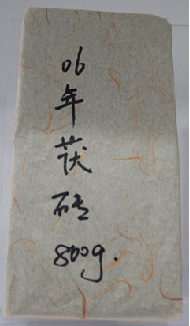 06
年
茯
砖
800g.